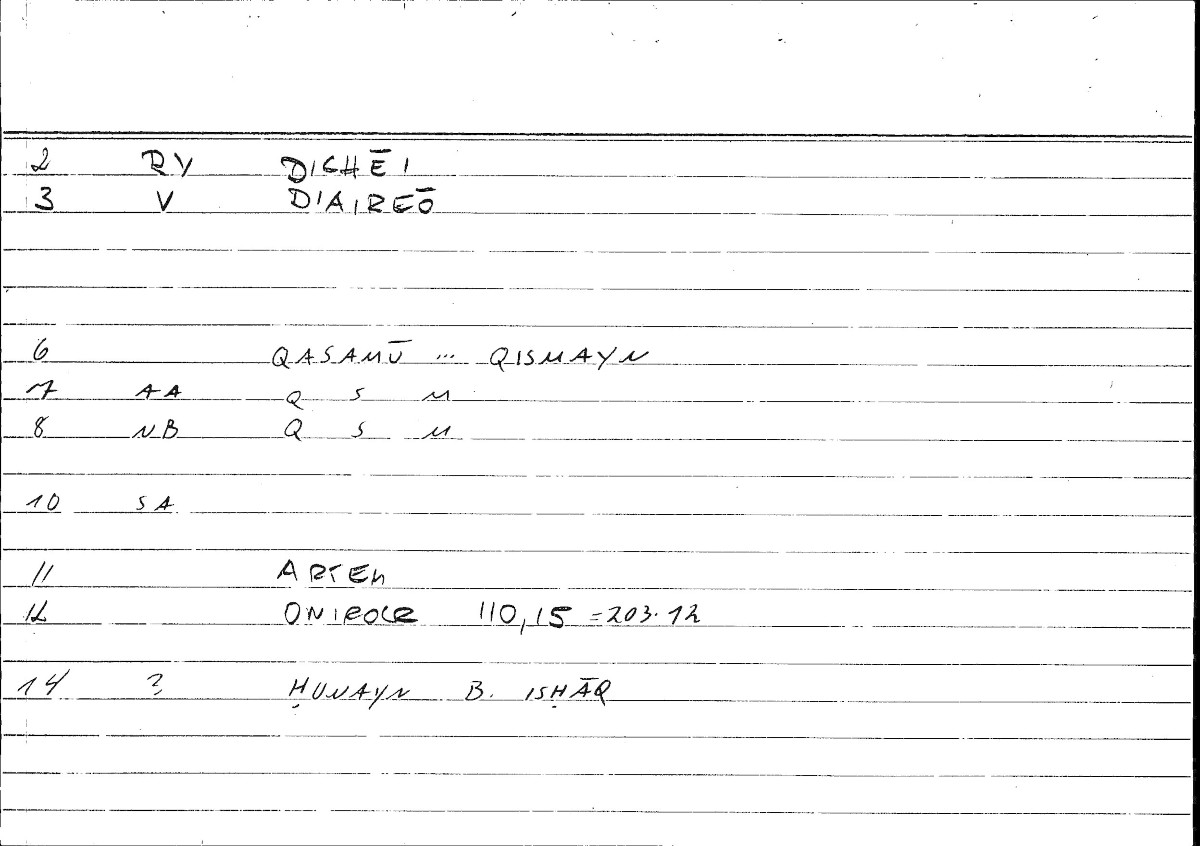 2 RV DICHĒI
3 V DIAIREŌ
6 QASAMŪ ... QISMAYN
7 AA Q S M
8 NB Q S M
10 SA
11 ARTEM
12 ONIROCR 110,15 =203.12
14 ? ḤUNAYN B. ISḤĀQ